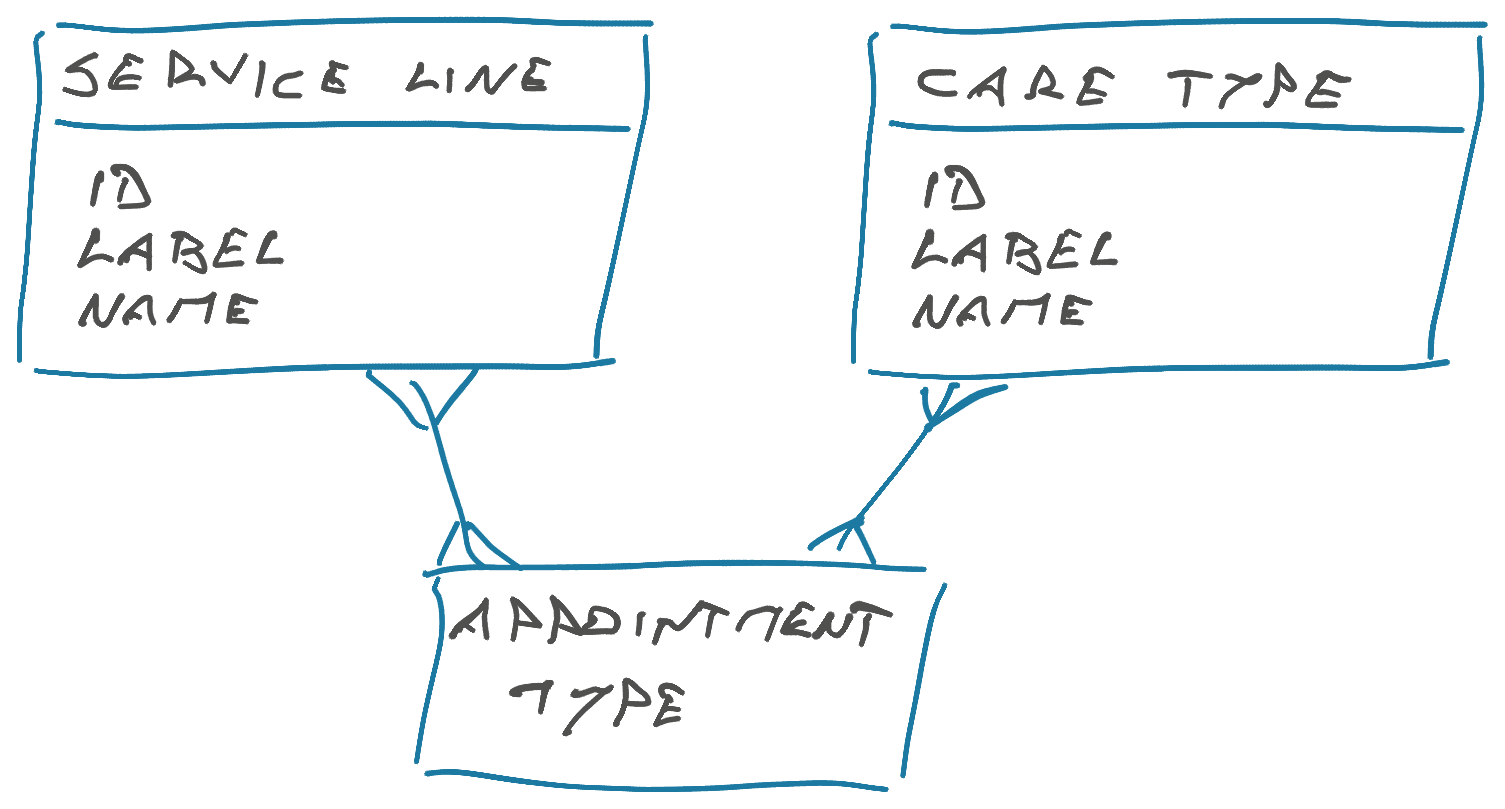 SERVICE LINE
ID
LABEL
NAME
CARE TYPE
ID
LABEL
NAME
APPOINTMENT
TYPE